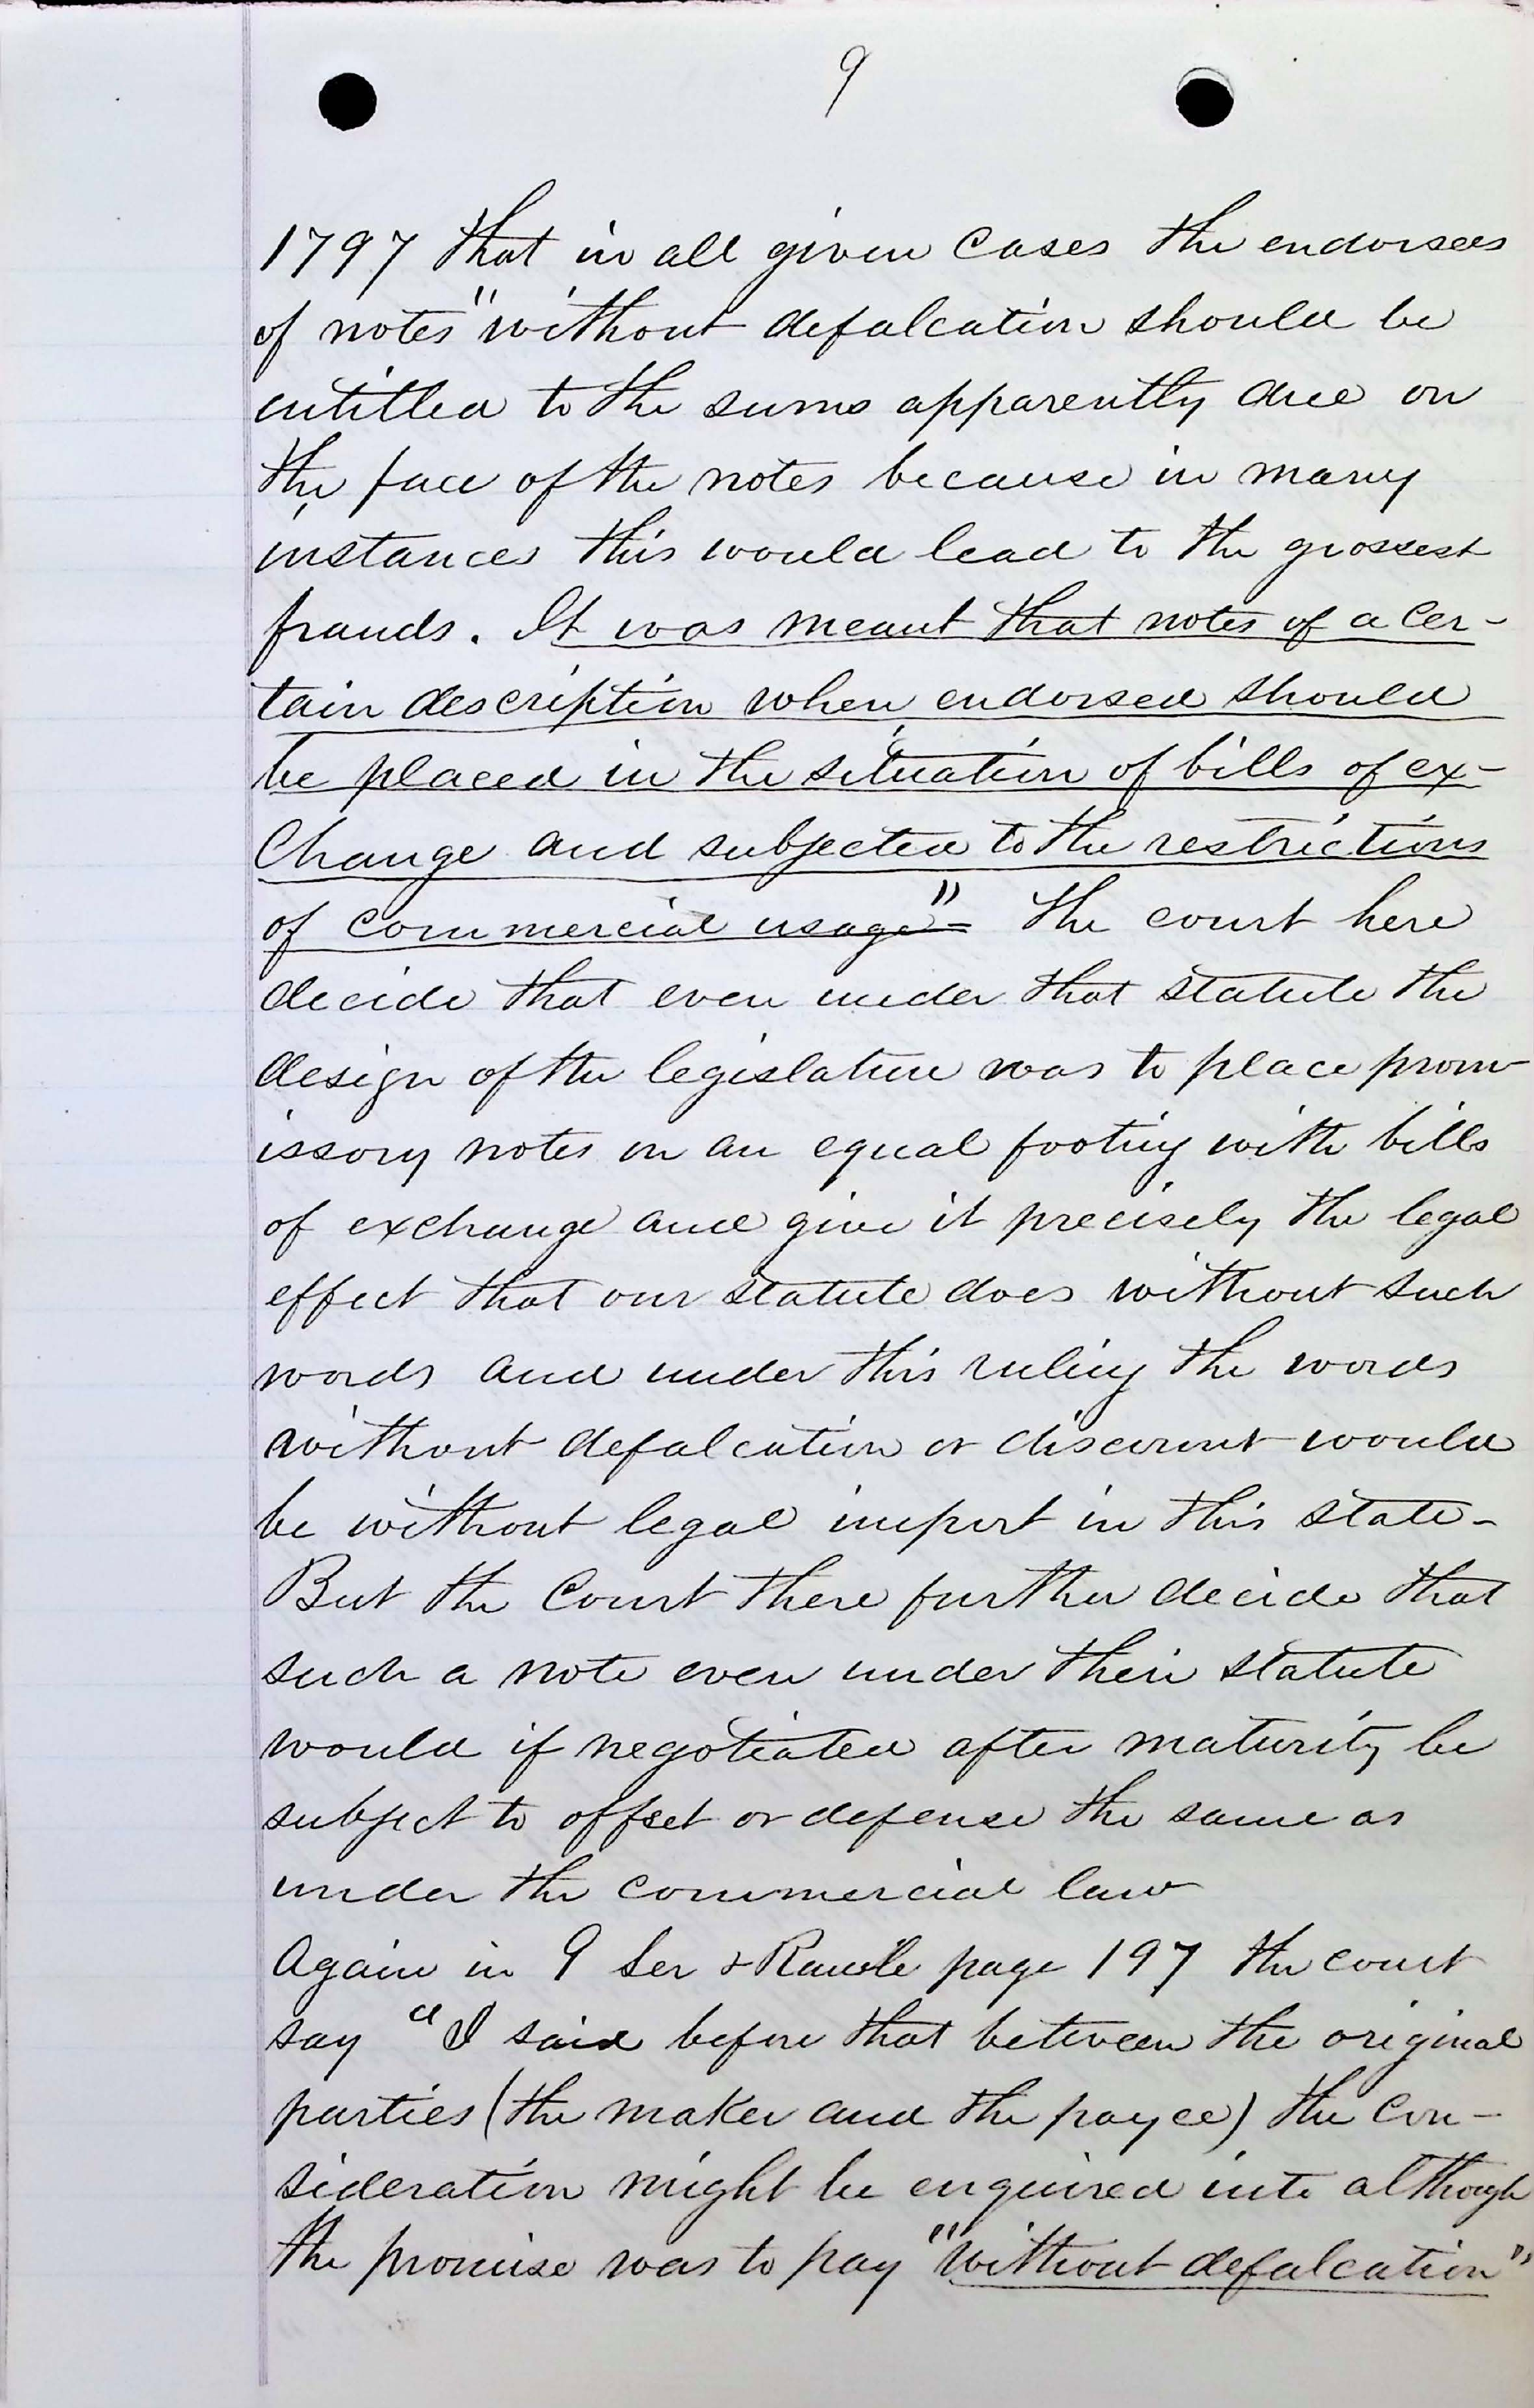 9
1797 that in all given cases the endorsees
of notes "without defalcation should be
entitled to the sums apparently due on
the face of the notes because in many
instances this would lead to the grossest
frauds. It was meant that notes of a cer-
tain description when endorsed should
be placed in the situation of bills of ex-
change and subjected to the restrictions
of commercial usage"= The court here
decide that even under that statute the
design of the legislature was to place prom
issory notes on an equal footing with bills
of exchange and give it precisely the legal
effect that our statute does without such
words and under this ruling the words
without defalcation or discount would
be without legal import in this state-
But the Court there further decide that
such a note even under their statute
would if negotiated after maturity be
subject to offset or defense the same as
under the commercial law
Again in 9 Ser & Rawle page 197 the court
say "I said before that between the original
parties (the maker and the payee) the con-
sideration might be enquired into although
the promise was to pay "without defalcation"